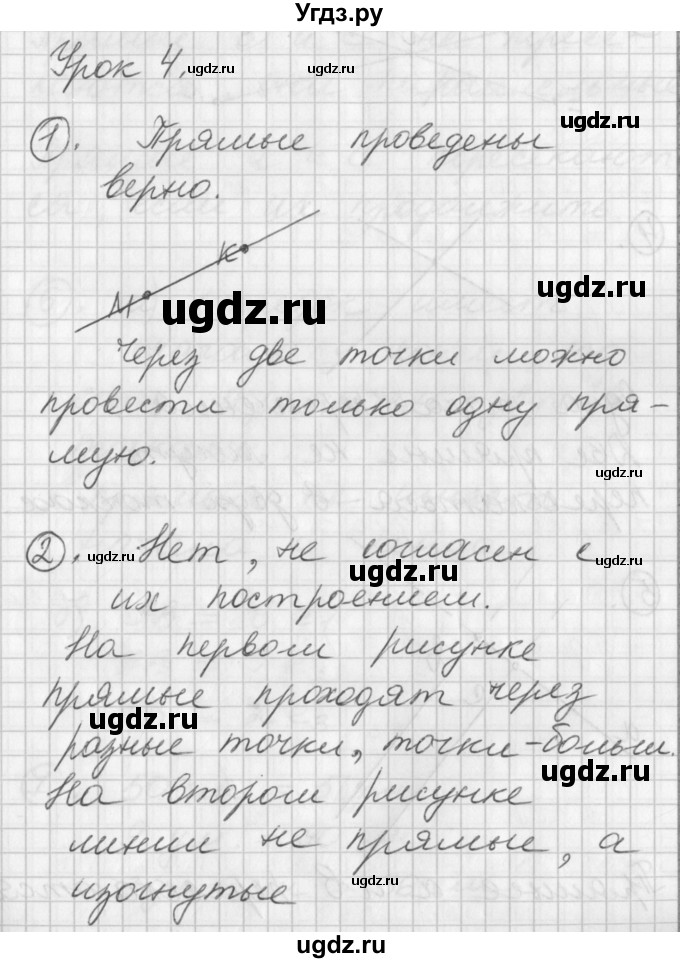 Угдз.ру
Урок 4. ugdz.ru
ugdz.ru
1. Прямые проведены
верно.
К
ugdz.ru
М
ugdz.ru
Через две точки можно
провести только одну пря-
мую.
ugdz.ru
2. ugdz.ru Нет, не согласен с
ugdz.ru
ugdz.ru
их построением.
На первом рисунке
прямые проходят через
ugdz.ru
разные точки, точки-больш.
ugdz.ru
На втором рисунке
линии не прямые, а
ugdz.ru
изогнутые
ugdz.ru